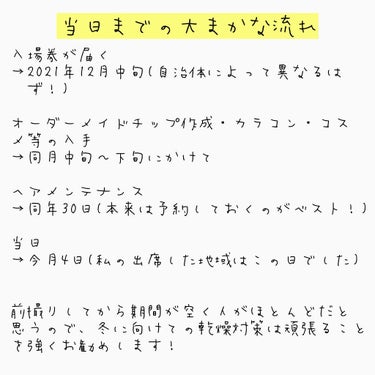 当日までの大まかな流れ
入場券が届く
→2021年12月中旬(自治体によって異なるは
ず!)
オーダーメイドチップ作成・カラコン・コス
メ等の入手
→同月中旬～下旬にかけて
ヘアメンテナンス
→同年30日(本来は予約しておくのがベスト!)
当日
→今月4日(私の出席した地域はこの日でした)
前撮りしてから期間が空く人がほとんどだと
思うので、冬に向けての乾燥対策は頑張ること
を強くお勧めします!